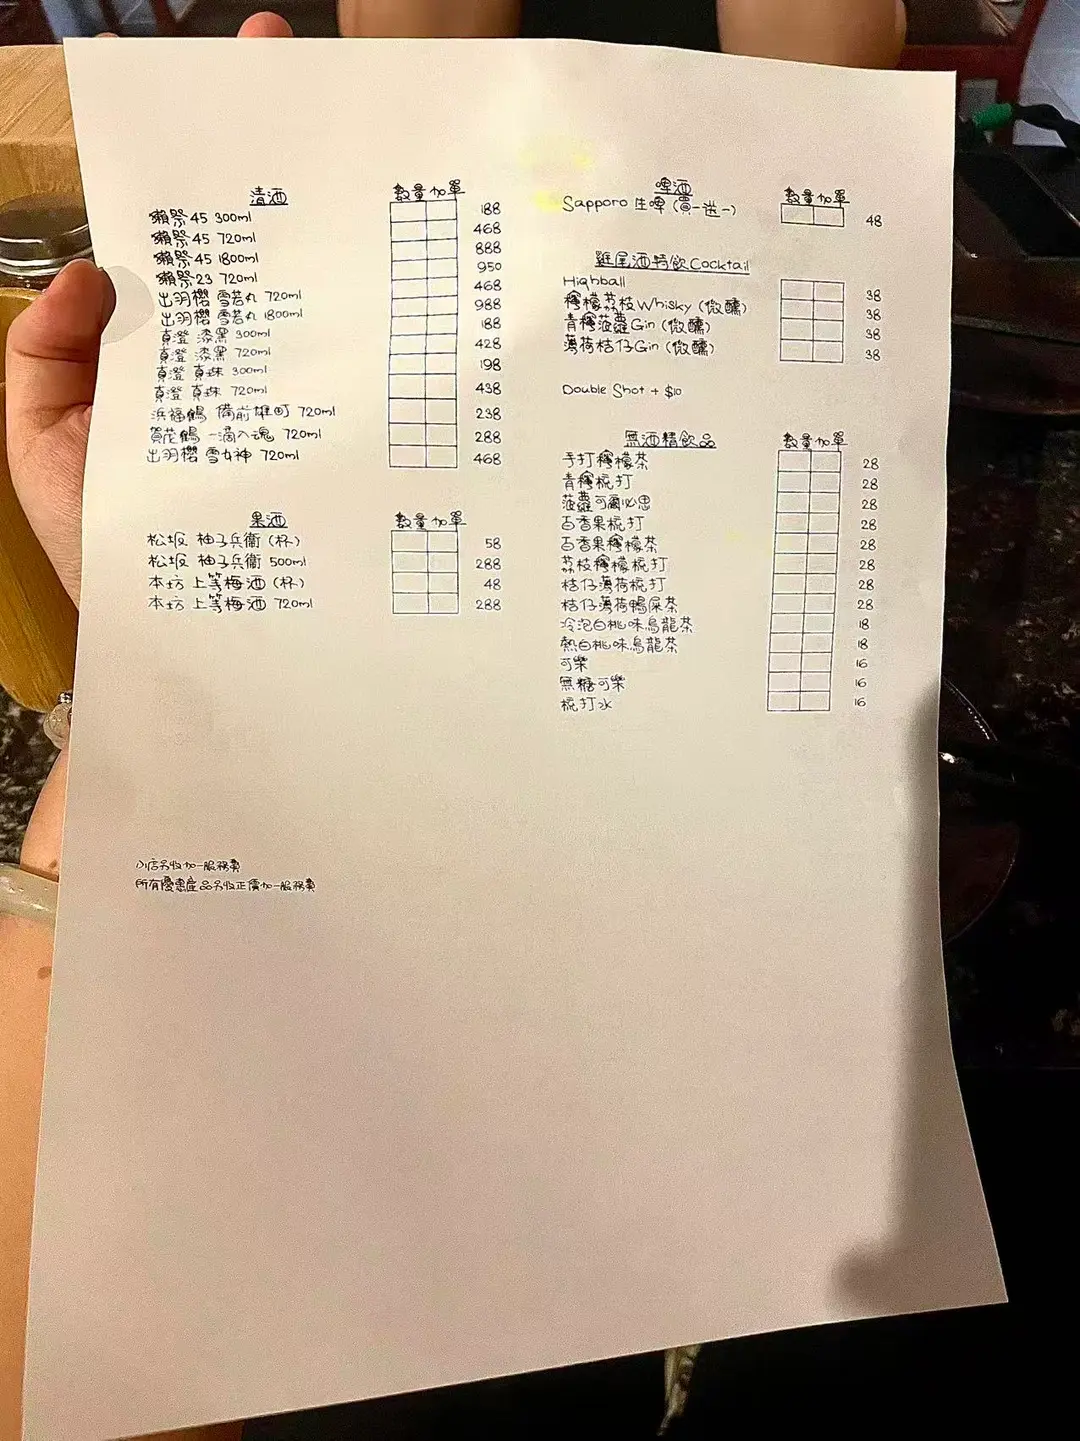 清酒 數量 加單
獺祭 45 300ml 188
獺祭 45 720ml 468
獺祭 45 1800ml 888
獺祭 23 720ml 950
出羽櫻 雪若丸 720ml 468
出羽櫻 雪若丸 1800ml 988
真澄 漆黑 300ml 188
真澄 漆黑 720ml 428
真澄 真珠 300ml 198
真澄 真珠 720ml 438
浜福鶴 備前雄町 720ml 238
賀茂鶴 一滴入魂 720ml 288
出羽櫻 雪女神 720ml 468
果酒 數量 加單
松坂 柚子兵衛 (杯) 58
松坂 柚子兵衛 500ml 288
本坊 上等梅酒 (杯) 48
本坊 上等梅酒 720ml 288
小店另收加一服務費
所有優惠產品另收正價加一服務費
啤酒 數量 加單
Sapporo 生啤 (買一送一) 48
雞尾酒特飲 Cocktail
Highball 38
檸檬荔枝 Whisky (微醺) 38
青檸菠蘿 Gin (微醺) 38
薄荷桔仔 Gin (微醺) 38
Double Shot + $10
無酒精飲品 數量 加單
手打檸檬茶 28
青檸梳打 28
菠蘿可爾必思 28
百香果梳打 28
百香果檸檬茶 28
荔枝檸檬梳打 28
桔仔薄荷梳打 28
桔仔薄荷鴨屎茶 28
冷泡白桃味烏龍茶 18
熱白桃味烏龍茶 18
可樂 16
無糖可樂 16
梳打水 16